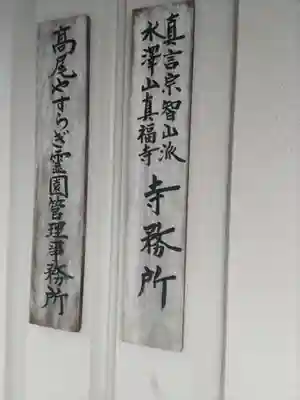 真言宗智山派
水澤山真福寺
寺務所
高尾やすらぎ霊園管理事務所